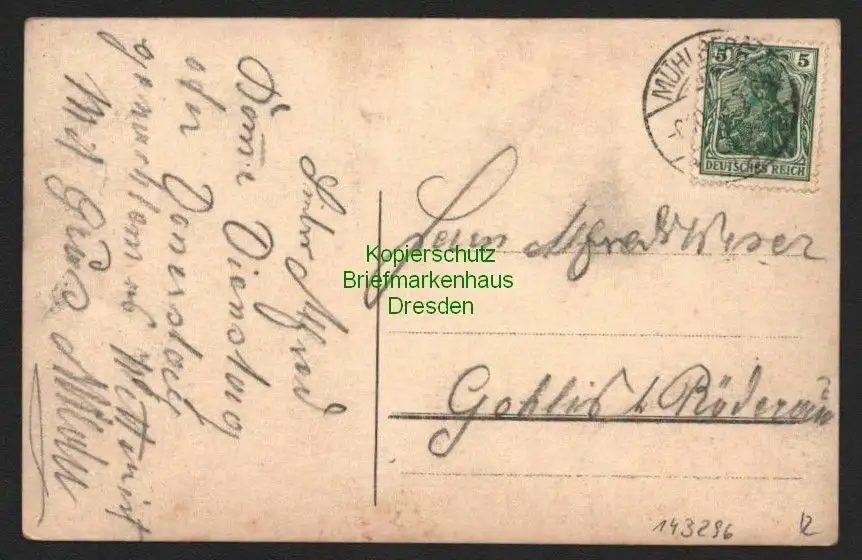 Lieber Alfred
Komme Dienstag
oder Donerstag
Mit Gruß
MÜHLBERG
5 5
DEUTSCHES REICH
Herrn Alfred Weser
Gohlis b Röderau
Kopierschutz
Briefmarkenhaus
Dresden
143296